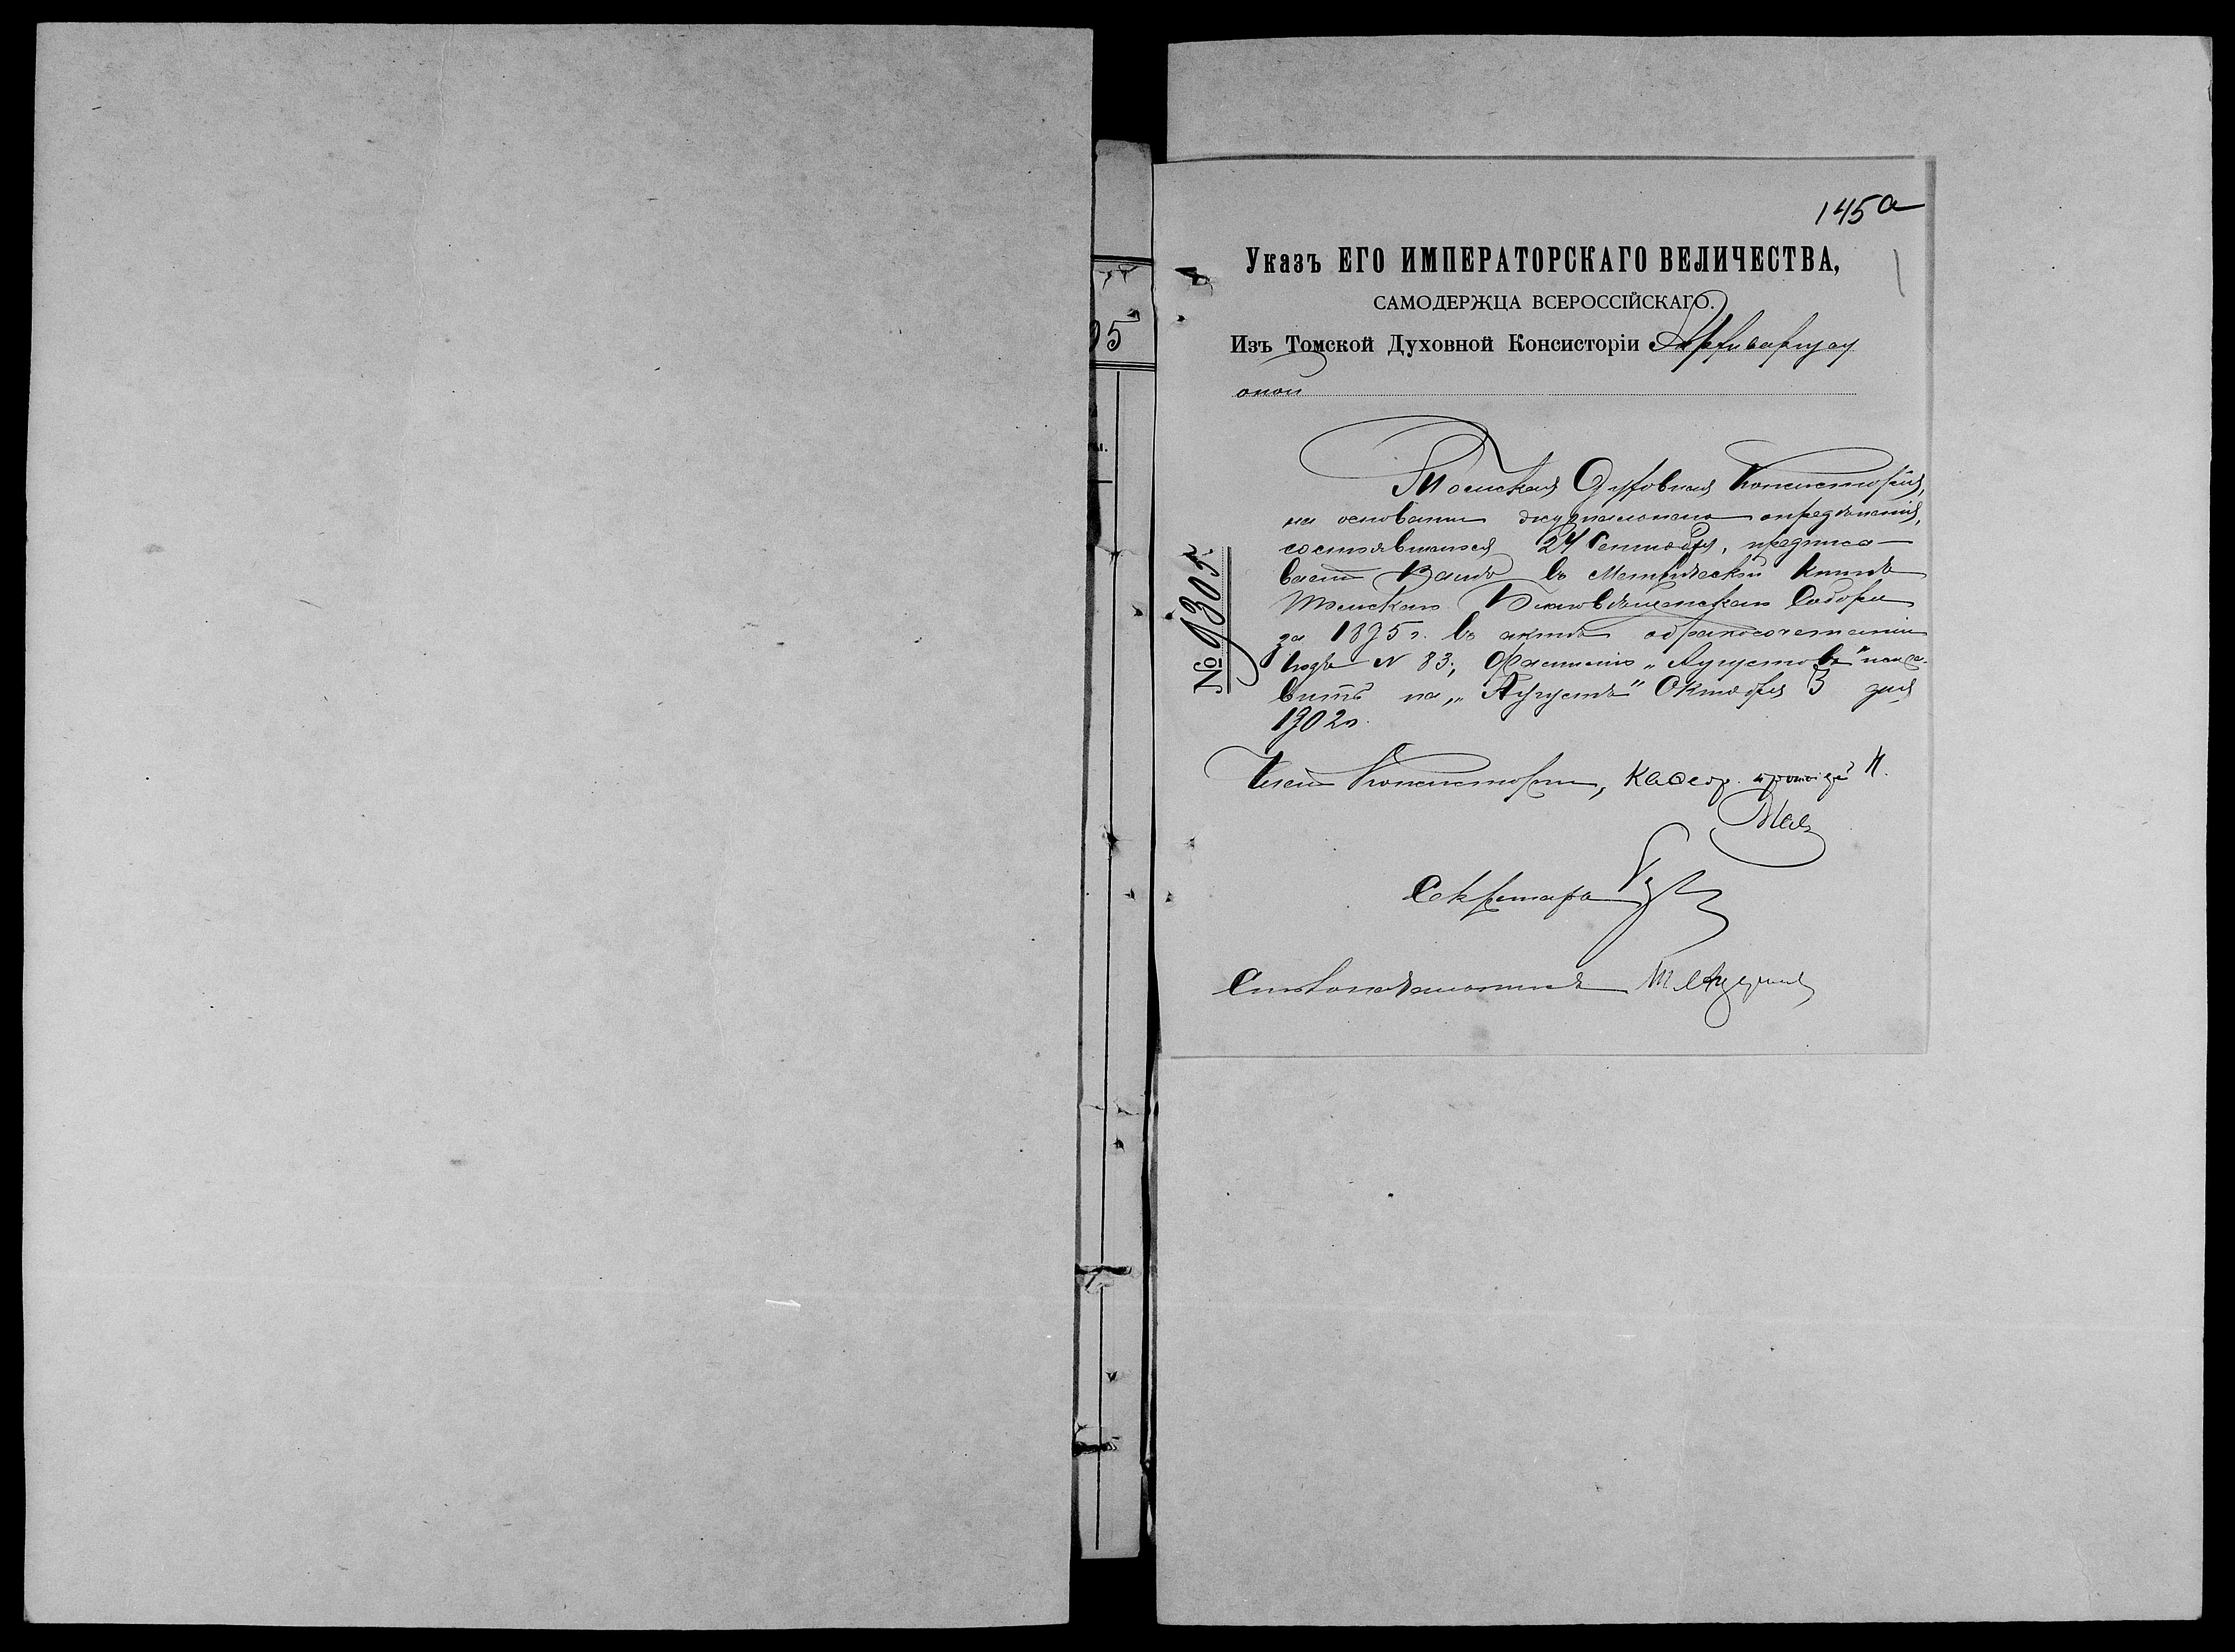 145а
Указъ ЕГО ИМПЕРАТОРСКАГО ВЕЛИЧЕСТВА,
САМОДЕРЖЦА ВСЕРОССІЙСКАГО.
95
Изъ Томской Духовной Консисторіи Архиваріусу
оной
Томская Духовная Консисторія,
на основаніи журнальнаго опредѣленія,
состоявшагося 24 Сентября, предписы-
ваетъ Вамъ въ Метрической книгѣ
Томскаго Благовѣщенскаго Собора
за 1895 г. въ актѣ о бракосочетаніи
подъ N 83, фамилію „Августовъ" испра-
вить на „Августъ" Октября 3 дня
1902 г.
№ 9305
Членъ Консисторіи, каѳедр. протоіерей Н.
Мал
Секретарь
Столоначальникъ